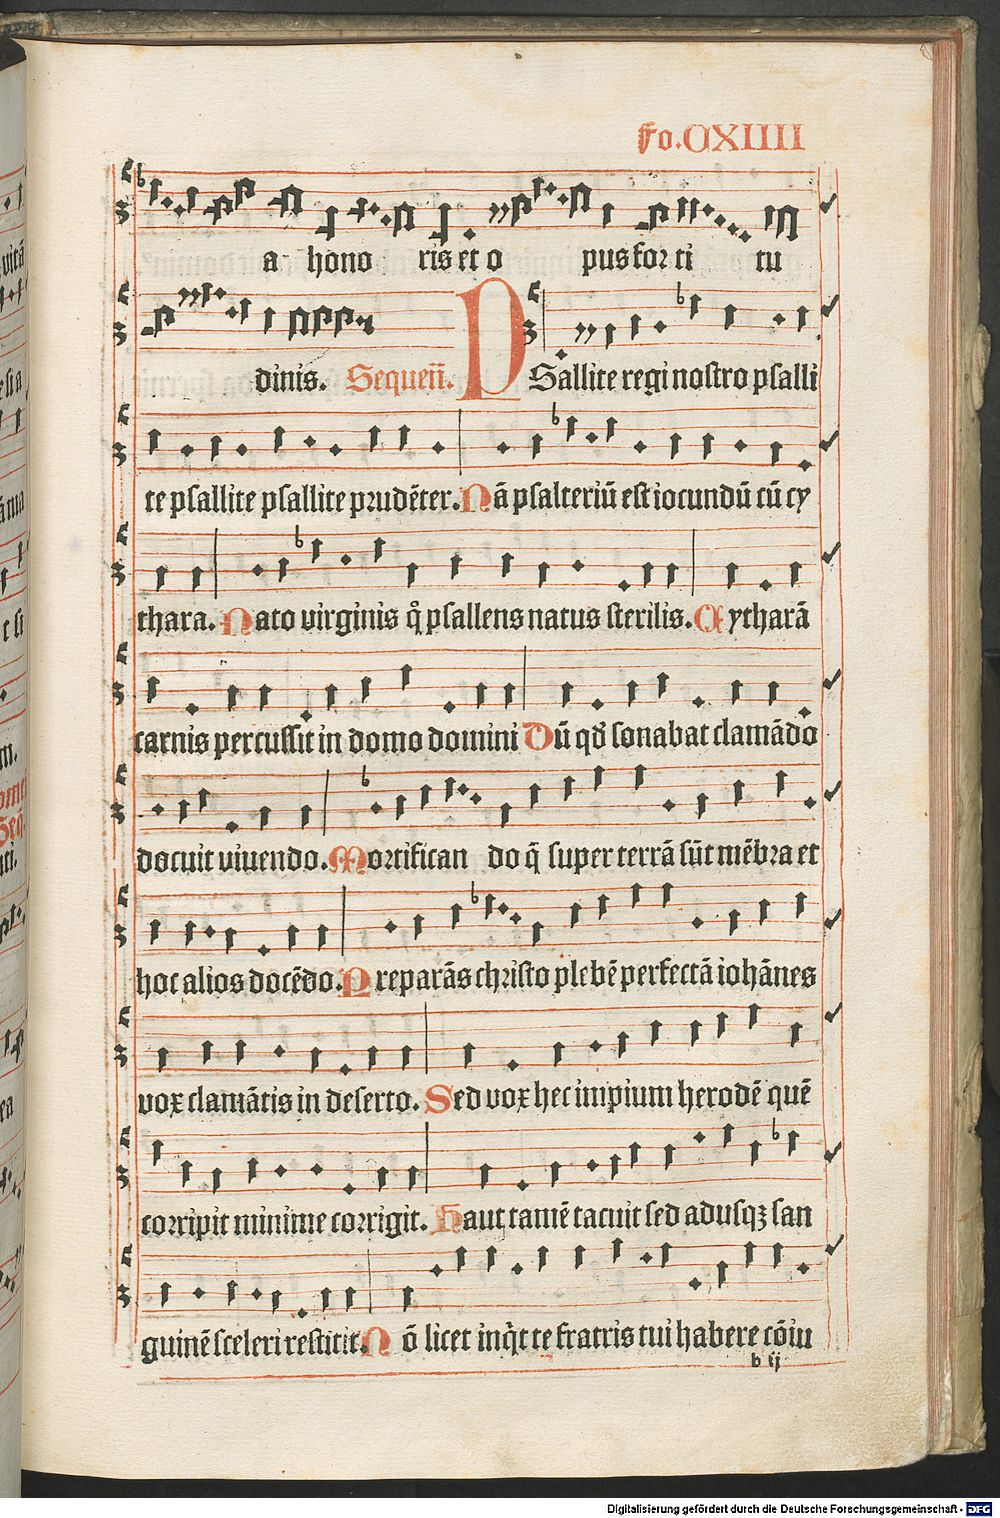 Fo.CXIIII
a- hono ris et o pus for ti tu
dinis. Sequen̄. PSallite regi nostro psalli
te psallite psallite prudēter. Nā psalteriū est iocundū cū cy
thara. Nato virginis q̄ psallens natus sterilis. Cytharā
carnis percussit in domo domini Dū qd̄ sonabat clamādo
docuit viuendo. Mortifican do q̄ super terrā sūt mēbra et
hoc alios docēdo. Preparās christo plebē perfectā iohānes
vox clamātis in deserto. Sed vox hec impium herodē quē
corripit minime corrigit. Haut tamē tacuit sed adusqꝫ san
guinē sceleri restitit. Nō licet inq̄t te fratris tui habere cōiu
b ij
Digitalisierung gefördert durch die Deutsche Forschungsgemeinschaft - DFG